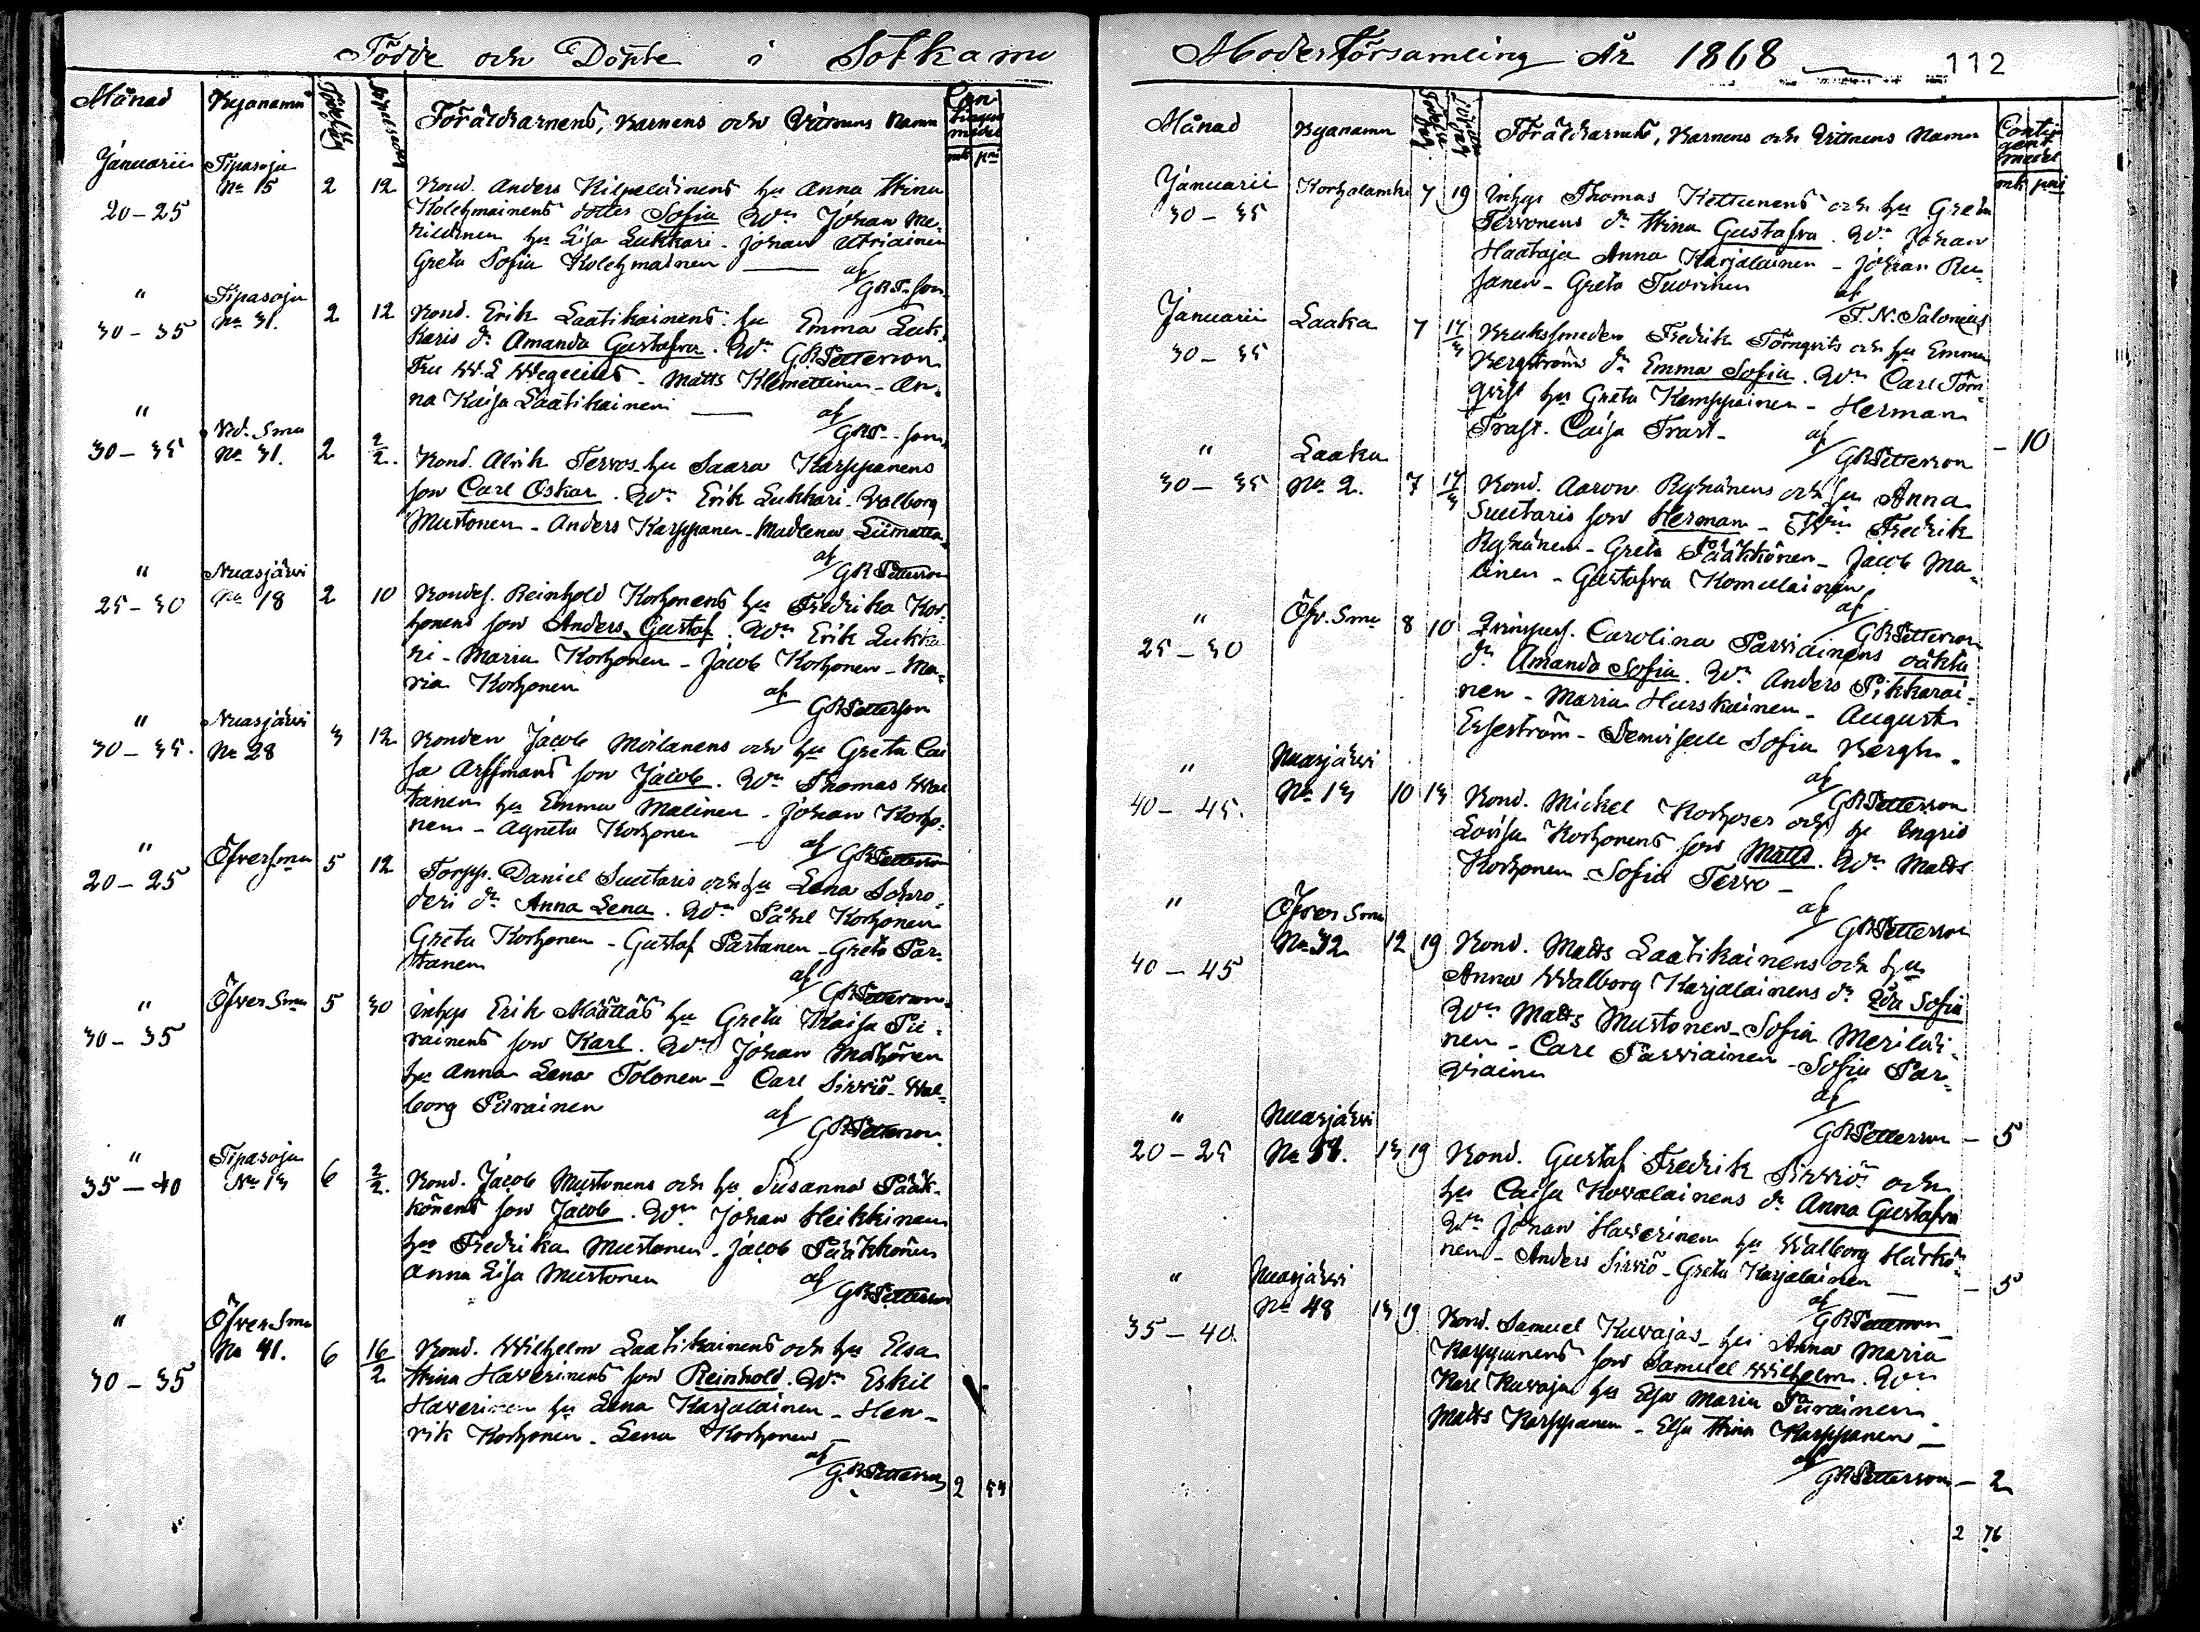 Födde och Döpte i Sotkamo
Månad Byanamn Föräldrarnens, Barnens och Vittnens Namn
mk pni
Januarii Tipasoja
No 15 2 12 Bond. Anders Kilpeläinens hu Anna Stina
20-25 Kolehmainens dotter Sofia Wn Johan Me-
riläinen hu Lisa Lukkari - Johan Utriainen
Greta Sofia Kolehmainen — af
" Tipasoja
30-35 No 31. 2 12 Bond. Erik Laatikainens hu Emma Luk-
karis dr Amanda Gustafva. Wn G R Petterson
Fru W. L Wegelius - Matts Klemettinen - An-
na Kaisa Laatikainen — af
" Nd. Smo
30-35 No 31. 2 2/2. Bond. Alrik Tervos hu Saara Karppanens
son Carl Oskar. Wn Erik Lukkari - Valborg
Mustonen - Anders Karppanen - Madlena Liimatta
af G R Petterson
" Nuasjärvi
25-30 No 18 2 10 Bondes. Reinhold Korhonens hu Fredrika Kor-
honens son Anders Gustaf. Wn Erik Lukka-
ri - Maria Korhonen - Jacob Korhonen - Ma-
ria Korhonen af G R Petterson
" Nuasjärvi
30-35. No 28 3 12 Bonden Jacob Moilanens och hu Greta Cai
sa Arffmans son Jacob. Wn Thomas War
tanen hu Emma Malinen - Johan Korho-
nen - Agneta Korhonen af G R Petterson
" Öfver Smo 5 12
20-25 Torpp. Daniel Suutaris och hu Lena Schro-
deri dr Anna Lena. Wn Påhl Korhonen
Greta Korhonen - Gustaf Partanen - Greta Par-
tanen af G R Petterson
" Öfver Smo 5 30 Inhys Erik Määttäs hu Greta Kaisa Pii-
30-35 rainens son Karl. Wn Johan Mähönen
hu Anna Lena Tolonen - Carl Sirviö - Wal-
borg Piirainen af G R Petterson
" Tipasoja
35-40 No 13 6 2/2. Bond. Jacob Mustonens och hu Susanna Pääk-
könens son Jacob. Wn Johan Heikkinen
hu Fredrika Mustonen - Jacob Pääkkönen
Anna Lisa Mustonen af G R Petterson
" Öfver Smo
No 41. 6 16/2 Bond. Wilhelm Laatikainens och hu Elsa
30-35 Stina Haverinens son Reinhold. Wn Eskil
Haverinen hu Lena Karjalainen - Hen-
rik Korhonen - Lena Korhonen
af G. R Petterson 2 54
Moderförsamling År 1868 112
Månad Byanamn Föräldrarnens, Barnens och Vittnens Namn
mk pni
Januarii Korholanmäki 7 19 Inhys Thomas Kettunens och hu Greta
30-35 Tervonens dr Stina Gustafva. Wn Johan
Haataja Anna Karjalainen - Johan Ru-
sanen - Greta Tuovinen af
T. N. Salonius
Januarii Laaka 7 17/3 Bruksmeden Fredrik Törnqvists och hu Emma
30-35 Bergströms dr Emma Sofia. Wn Carl Törn-
qvist hu Greta Kemppainen - Herman
Trast. Caisa Trast - af
G R Petterson - 10
" Laaka
30-35 No 2. 7 17/3 Bond. Aaron Ryhänens och hu Anna
Suutaris son Herman - Wn Fredrik
Ryhänen - Greta Pääkkönen - Jacob Ma-
linen - Gustafva Komulainen
af G R Petterson
" Öfv. Smo 8 10 Qvinspers. Carolina Parviainens oäkta
25-30 dr Amanda Sofia. Wn Anders Pikkarai-
nen - Maria Hurskainen - August
- Demoiselle Sofia Bergh.
af G R Petterson
" Nuasjärvi
40-45. No 13 10 13 Bond. Mickel Korhoses och hu Ingrid
Lovisa Korhonens son Matts. Wn Matts
Korhonen - Sofia Tervo -
af G R Petterson
" Öfver Smo
No 32 12 19 Bond. Matts Laatikainens och hu
40-45 Anna Walborg Karjalainens dr Ida Sofia
Wn Matts Mustonen - Sofia Meriläi-
nen - Carl Parviainen - Sofia Par-
viainen
af G R Petterson - 5
" Nuasjärvi
20-25 13 19 Bond. Gustaf Fredrik Sirviös och
hu Caisa Kovalainens dr Anna Gustafva
Wn Johan Haverinen hu Walborg Härkö-
nen - Anders Sirviö - Greta Karjalainen - 5
af G R Petterson
" Nuasjärvi
No 48 13 19 Bond. Samuel Kuvajas hu Anna Maria
35-40. Karppanens son Samuel Wilhelm. Wn
Karl Kuvaja hu Elsa Maria Piirainen
Matts Karppanen - Elsa Stina Karppanen -
af G R Petterson - 2
2 76